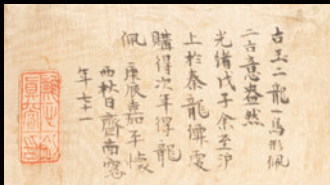 古玉二龍一馬形佩
二古意盎然
光緒戊子余至滬
上於秦龍禪處
購得次年得龍
佩 庚辰嘉平懷
西秋日齋南窓
年七十一